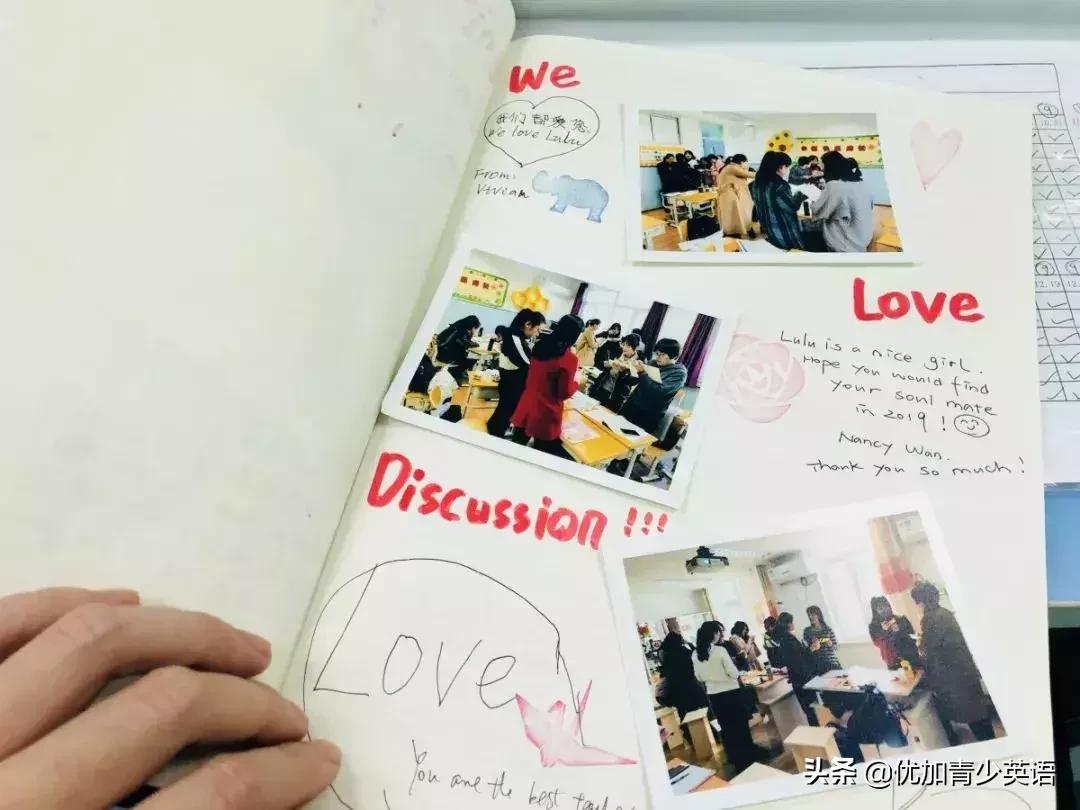 We
我们都爱您
We love Lulu
From:
Love
Lulu is a nice girl.
Hope you would find
your soul mate
in 2019!
Nancy Wan.
Thank you so much!
Discussion!!!
Love
You are the best
头条 @优加青少英语